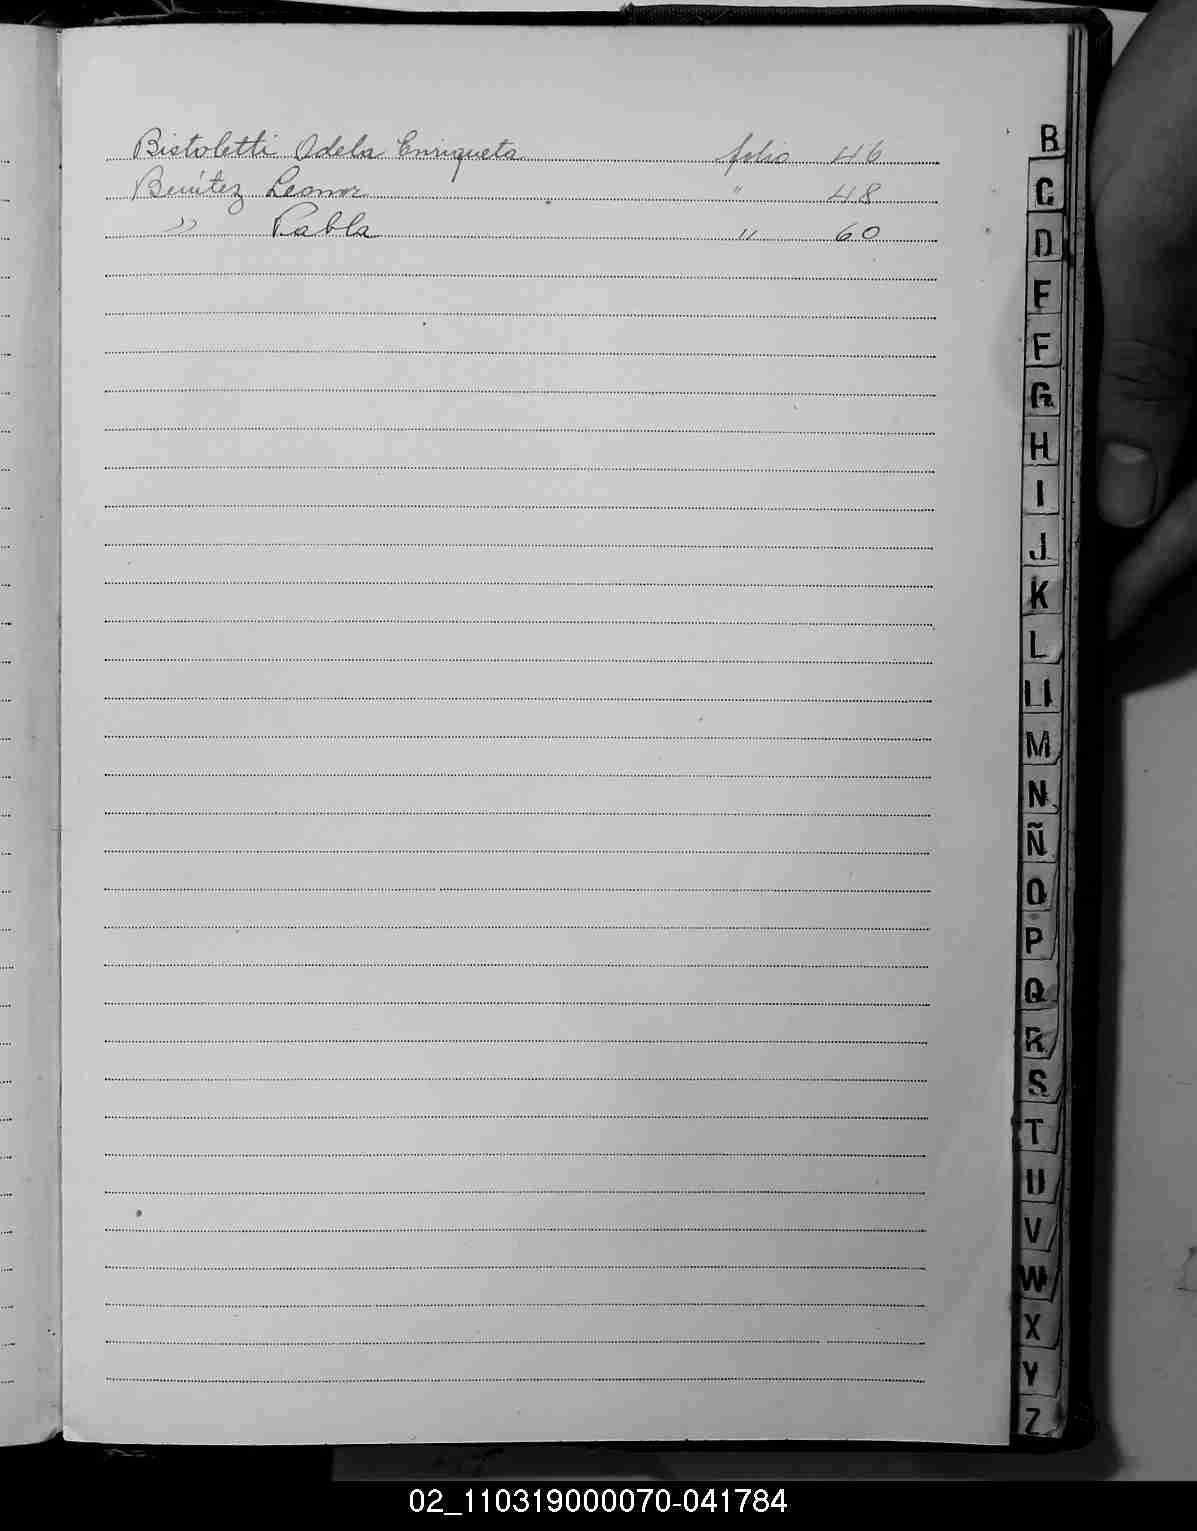 Bistoletti Adela Enriqueta folio 46
Benítez Leonor " 48
" Pabla " 60
B
C
D
E
F
G
H
I
J
K
L
Ll
M
N
Ñ
O
P
Q
R
S
T
U
V
W
X
Y
Z
02_110319000070-041784